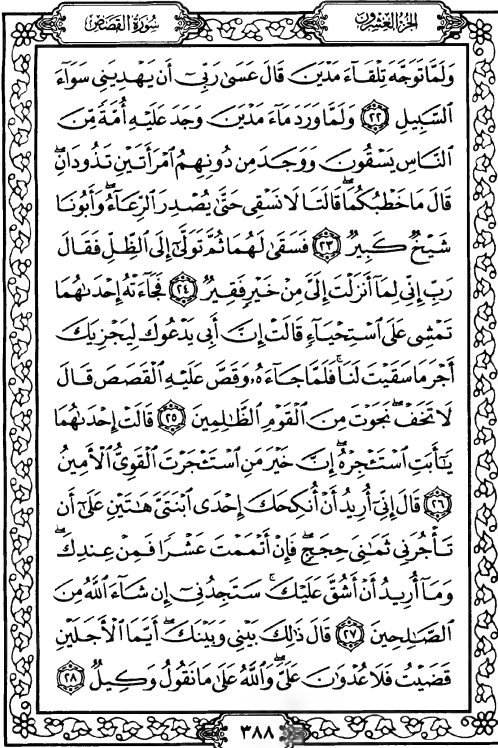 سُورَةُ القَصَصِ
الجُزءُ العِشْرُونَ
وَلَمَّا تَوَجَّهَ تِلْقَآءَ مَدْيَنَ قَالَ عَسَىٰ رَبِّىٓ أَن يَهْدِيَنِى سَوَآءَ
ٱلسَّبِيلِ ٢٢ وَلَمَّا وَرَدَ مَآءَ مَدْيَنَ وَجَدَ عَلَيْهِ أُمَّةً مِّنَ
ٱلنَّاسِ يَسْقُونَ وَوَجَدَ مِن دُونِهِمُ ٱمْرَأَتَيْنِ تَذُودَانِۖ
قَالَ مَا خَطْبُكُمَاۖ قَالَتَا لَا نَسْقِى حَتَّىٰ يُصْدِرَ ٱلرِّعَآءُۖ وَأَبُونَا
شَيْخٌ كَبِيرٌ ٢٣ فَسَقَىٰ لَهُمَا ثُمَّ تَوَلَّىٰٓ إِلَى ٱلظِّلِّ فَقَالَ
رَبِّ إِنِّى لِمَآ أَنزَلْتَ إِلَىَّ مِنْ خَيْرٍ فَقِيرٌ ٢٤ فَجَآءَتْهُ إِحْدَىٰهُمَا
تَمْشِى عَلَى ٱسْتِحْيَآءٍ قَالَتْ إِنَّ أَبِى يَدْعُوكَ لِيَجْزِيَكَ
أَجْرَ مَا سَقَيْتَ لَنَاۚ فَلَمَّا جَآءَهُۥ وَقَصَّ عَلَيْهِ ٱلْقَصَصَ قَالَ
لَا تَخَفْۖ نَجَوْتَ مِنَ ٱلْقَوْمِ ٱلظَّـٰلِمِينَ ٢٥ قَالَتْ إِحْدَىٰهُمَا
يَـٰٓأَبَتِ ٱسْتَـْٔجِرْهُۖ إِنَّ خَيْرَ مَنِ ٱسْتَـْٔجَرْتَ ٱلْقَوِىُّ ٱلْأَمِينُ
٢٦ قَالَ إِنِّىٓ أُرِيدُ أَنْ أُنكِحَكَ إِحْدَى ٱبْنَتَىَّ هَـٰتَيْنِ عَلَىٰٓ أَن
تَأْجُرَنِى ثَمَـٰنِىَ حِجَجٍۖ فَإِنْ أَتْمَمْتَ عَشْرًا فَمِنْ عِندِكَۖ
وَمَآ أُرِيدُ أَنْ أَشُقَّ عَلَيْكَۚ سَتَجِدُنِىٓ إِن شَآءَ ٱللَّهُ مِنَ
ٱلصَّـٰلِحِينَ ٢٧ قَالَ ذَٰلِكَ بَيْنِى وَبَيْنَكَۖ أَيَّمَا ٱلْأَجَلَيْنِ
قَضَيْتُ فَلَا عُدْوَٰنَ عَلَىَّۖ وَٱللَّهُ عَلَىٰ مَا نَقُولُ وَكِيلٌ ٢٨
٣٨٨